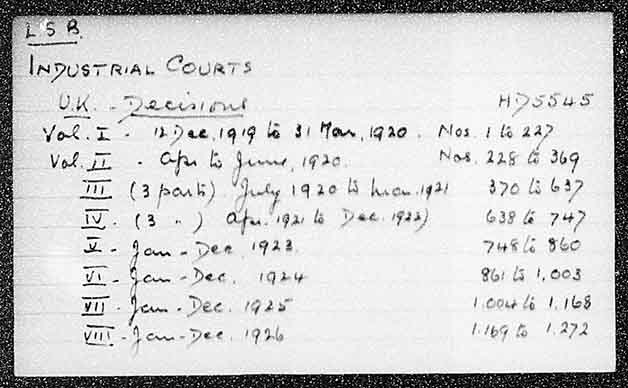 L S B.
INDUSTRIAL COURTS
U.K. - Decisions HD5545
Vol. I - 12 Dec. 1919 to 31 Mar. 1920. Nos. 1 to 227
Vol. II - Apr. to June, 1920. Nos. 228 to 369
III (3 parts) July 1920 to Mar. 1921 370 to 637
IV. (3 " ) Apr. 1921 to Dec. 1922) 638 to 747
V - Jan - Dec. 1923. 748 to 860
VI - Jan - Dec. 1924 861 to 1,003
VII - Jan - Dec. 1925 1.004 to 1.168
VIII - Jan - Dec. 1926 1.169 to 1.272